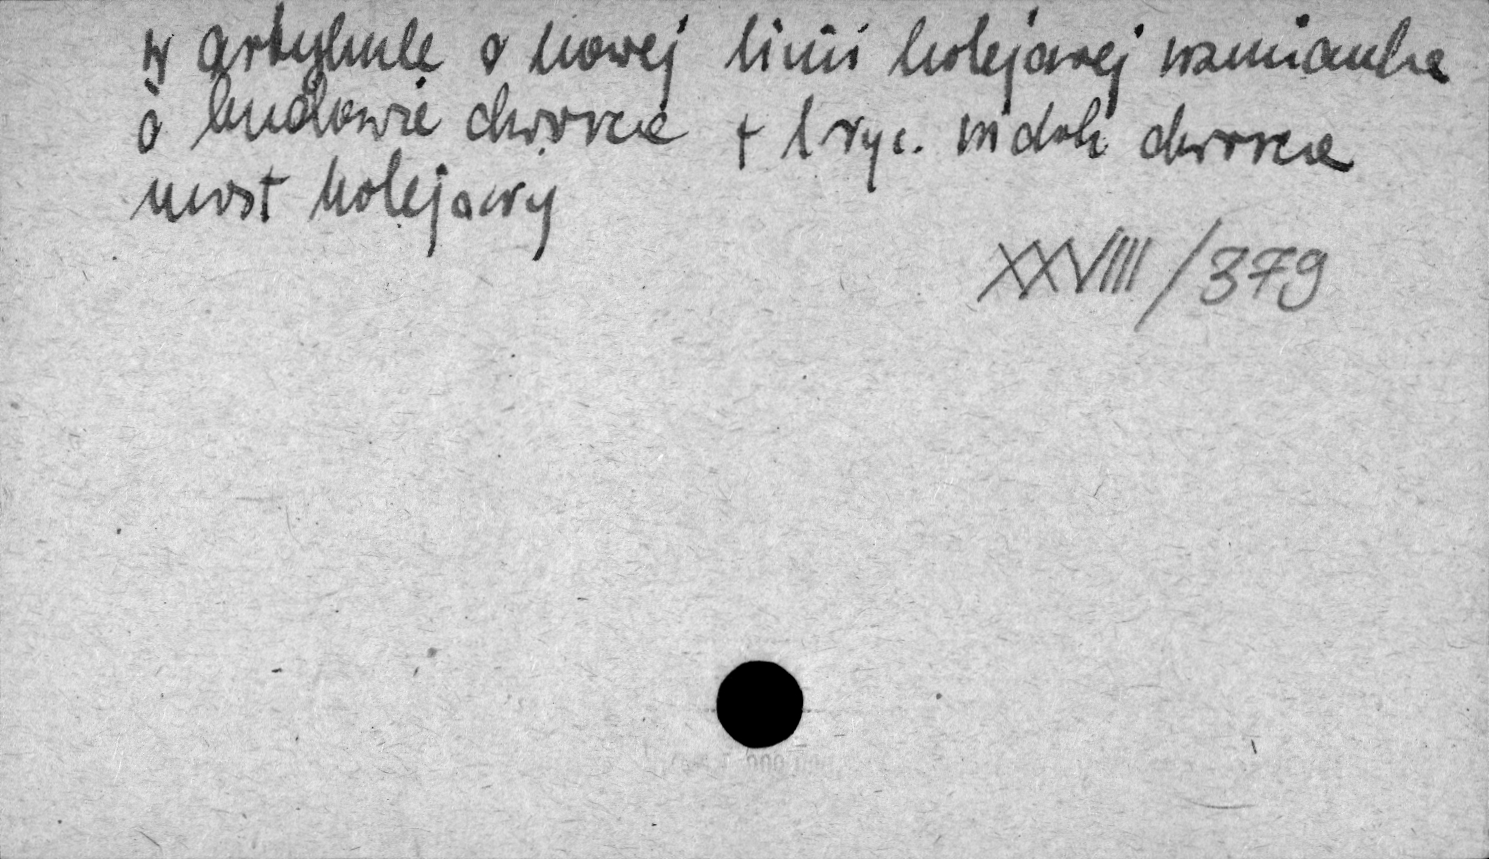 w artykule o nowej linii kolejowej wzmianka
o budowie dworca + 1 ryc. widok dworca
most kolejowy
XXVIIII/379